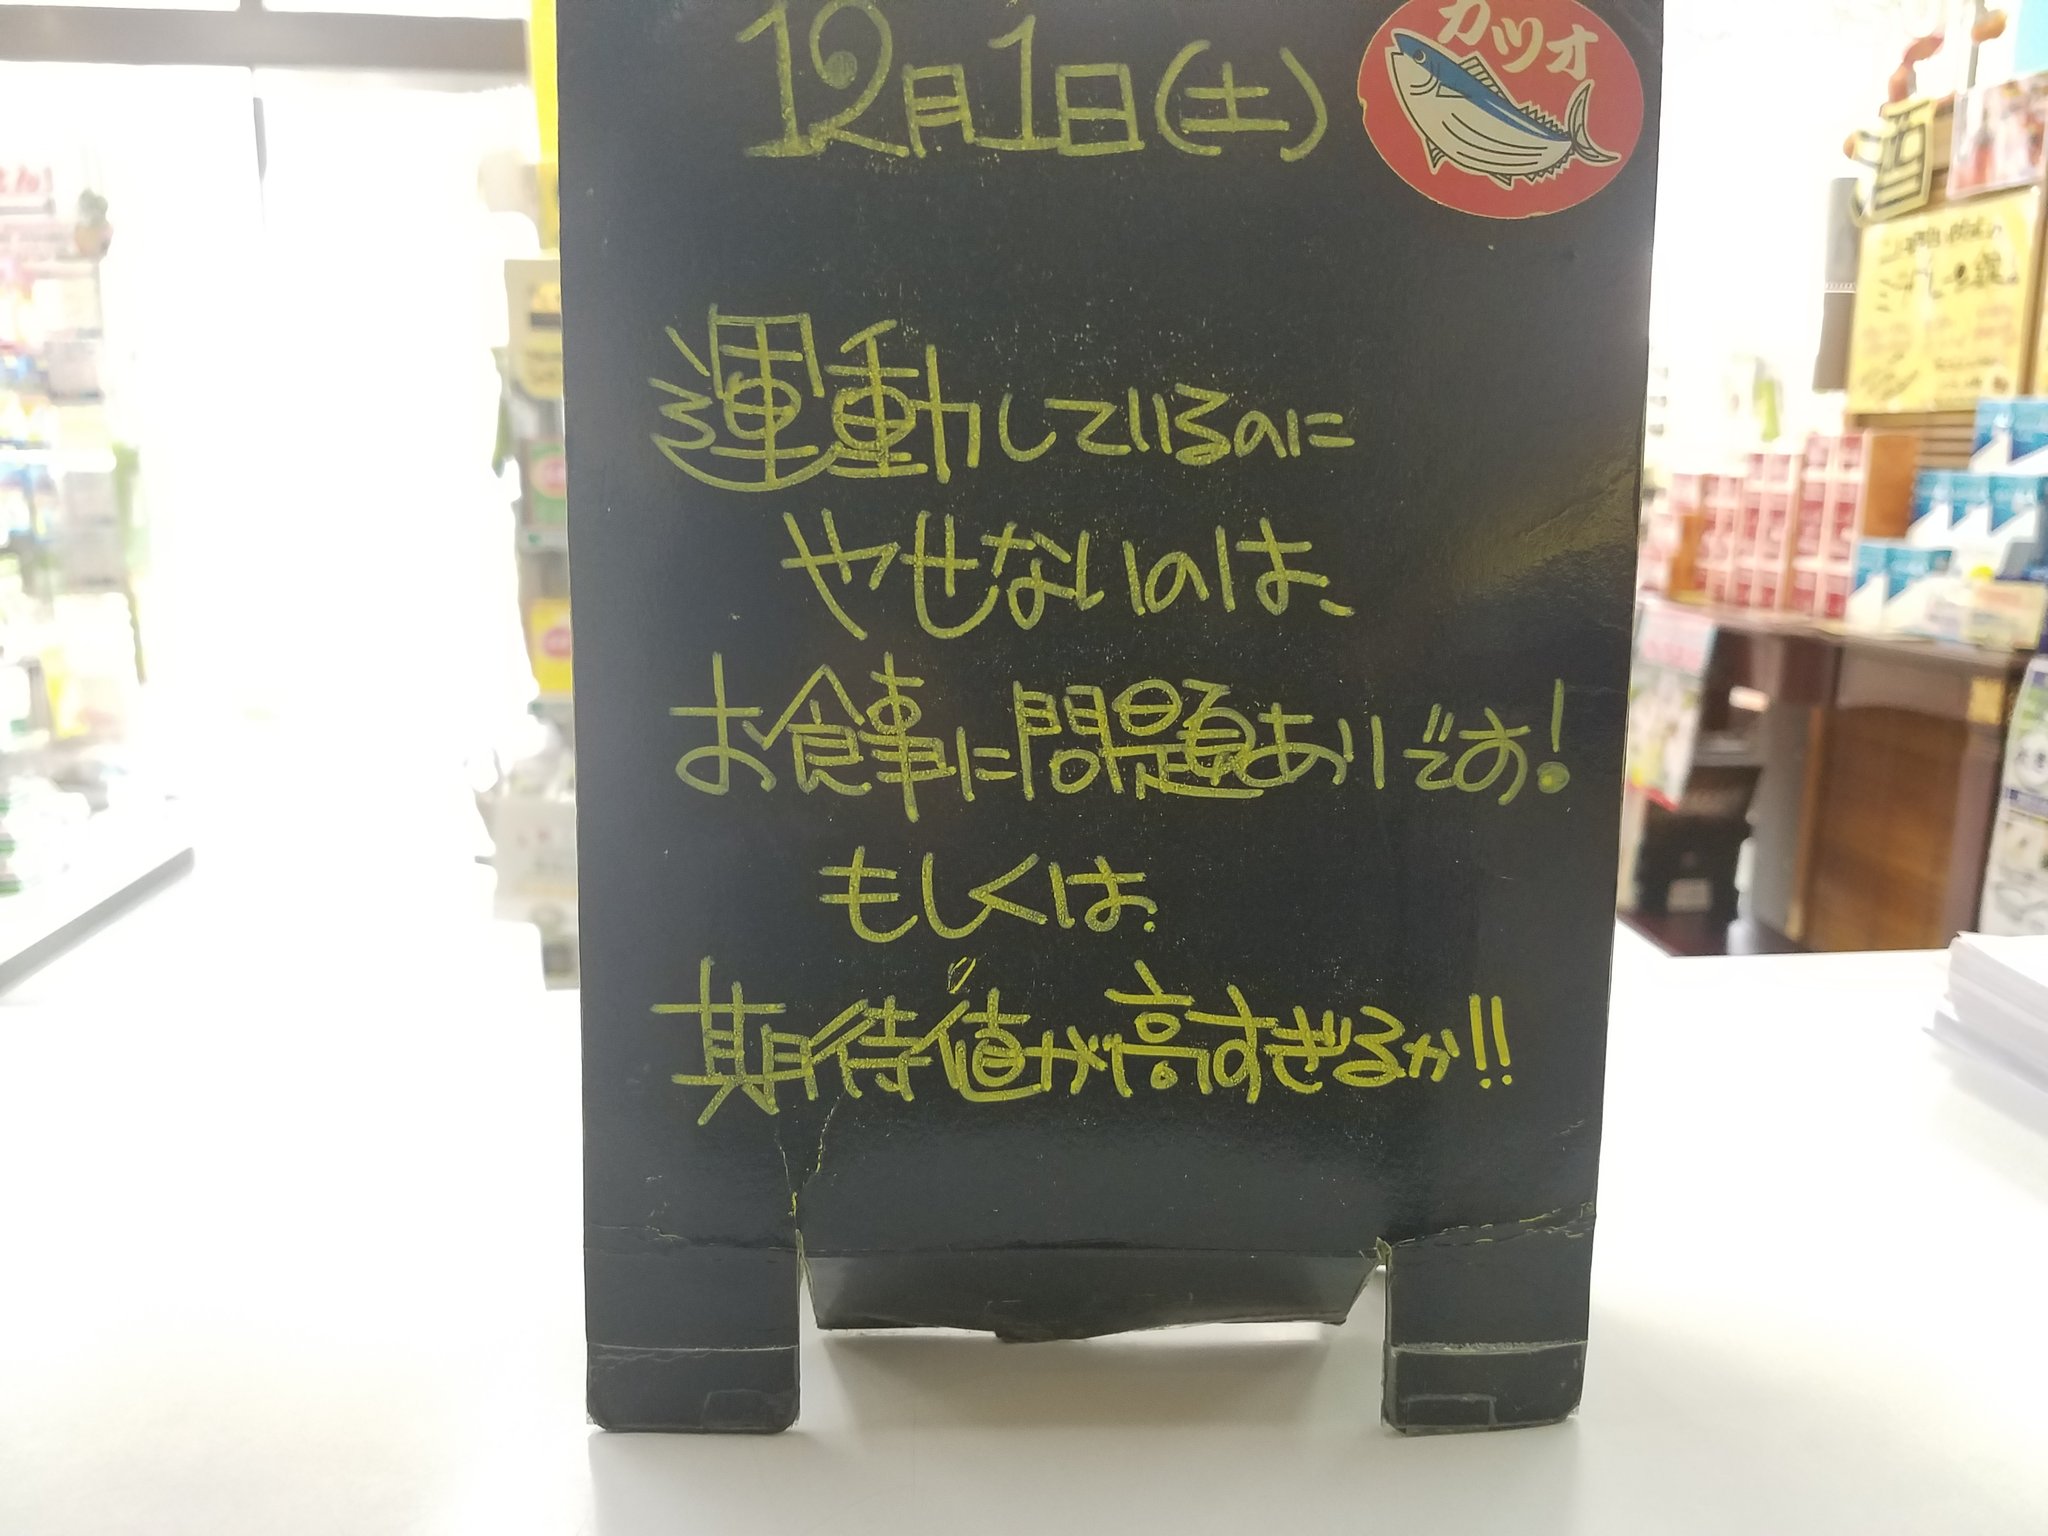 12月1日(土)
カツオ
運動しているのに
やせないのは、
お食事に問題ありです!
もしくは.
期待値が高すぎるか!!
酒